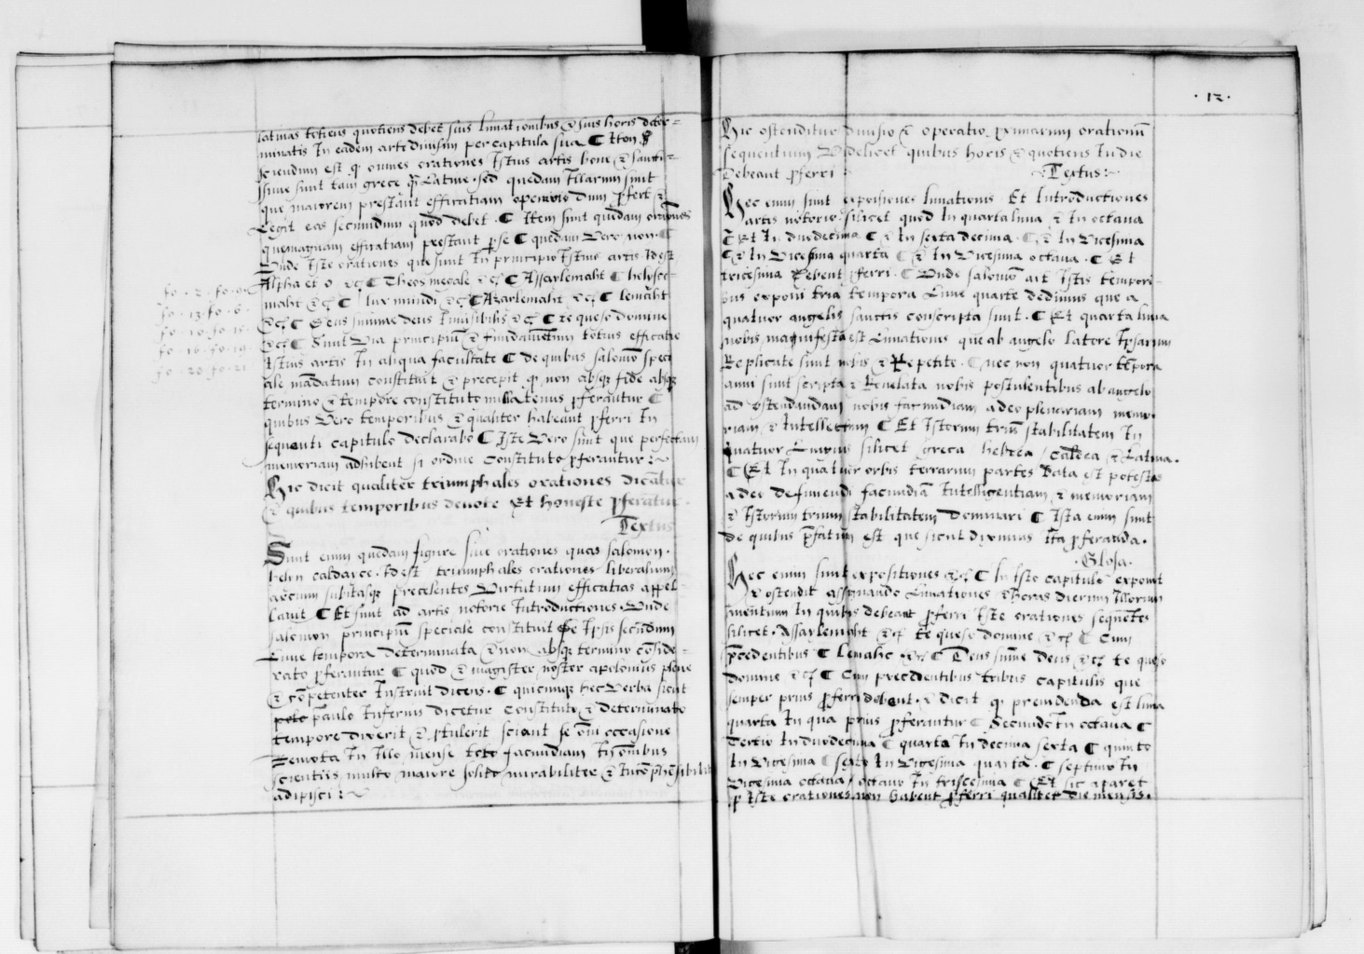 latinas totiens quotiens debet suis lunationibus & suis horis deter=
minatis In eadem arte divisim per capitula sua ¶ Iton
sciendum est q omnes orationes Istius artis bone & sancti=
sime sunt tam grece q̃ Latine . sed quedam Illarum sunt
que maiorem prestant efficatiam operis dum pfert &
Legit eas secundum quod debet . ¶ Item sunt quedam orationes
que magnam efficatiam prestant p se ¶ quedam Vero non . ¶
Unde Iste orationes que sunt In principio Istius artis . Idest
Alpha et o &c ¶ Theos megale &c ¶ Assarlemaht ¶ helysce=
fo . 2 . fo .
maht &c ¶ lux mundi &c ¶ Azarlemaht &c ¶ lemaht
fo . 13 . fo . 6
&c ¶ Deus summe deus Inuisibilis &c ¶ te queso domine
fo . 10 . fo . 15
&c ¶ Sunt Via principiũ & fundamentum totius efficatie
fo . 16 . fo . 19
Istius artis In aliqua facultate ¶ de quibus salomõ speci
fo . 20 . fo . 21
ale mãdatum constituit & precepit q non absq fide absq
termino & tempore constituto nullatenus pferantur ¶
quibus Vero temporibus & qualiter habeant pferri In
sequenti capitulo declarabo ¶ Iste Vero sunt que perfectam
memoriam adhibent si ordine constituto pferantur :~
Hic dicit qualiter triumphales orationes dicãtur
& quibus temporibus deuote Et honeste pferatur .
Textus
Sunt enim quedam figure siue orationes quas salomon .
helin caldaice . Idest triumphales orationes liberalium
arcium subitasq precelentes Virtutum efficatias appel
lauit ¶ Et sunt ad artis notorie Introductiones . Unde
salomon principiũ speciale constituit de Ipsis secũdum
Lune tempora determinata & non absq termino cõside=
rato pferantur ¶ quod & magister noster apolonius plene
& cõpetenter Instruit dicens . ¶ quicunq hec Verba sicut
paulo Inferius dicetur Constituto & determinato
tempore dixerit & ptulerit sciant se oĩ occasione
Remota In Illo mense toto facundiam In omnibus
scientiis multo maiore solito mirabiliter & Incõphẽsibilit
adipisci :~
. 12 .
Hic ostenditur diuisio & operatio primarum orationũ
sequentium Videlicet quibus horis & quotiens In die
debeant pferri :
~ Textus :~
Hec enim sunt exposiones lunationis Et Introductiones
artis notorie . silicet quod In quarta luna & In octaua
¶ Et In duodecima ¶ & In sexta decima . ¶ & In Vicesima
¶ & In Vicesima quarta ¶ & In Vicesima octaua . ¶ Et
tricesima debent pferri . ¶ Unde salomõ ait Istis tempori=
bus exponi tria tempora Lune quarte dedimus que a
quatuor angelis sanctis conscripta sunt . ¶ Et quarta luna
nobis magnifesta est Lunationis que ab angelo latore Ipsarum
Replicate sunt nobis & Repetite . ¶ nec non quatuor tẽpora
anni sunt scripta & Reuelata nobis postulentibus ab angelo
ad ostendandam nobis facundiam adeo plenariam memo=
riam & Intellectum ¶ Et Istorum triũ stabilitatem In
quatuor Linguis silicet greca hebrea / caldea & Latina .
¶ Et In quatuor orbis terrarum partes Data est potestas
a deo definiendi facundiã Intelligentiam & memoriam
& Istorum trium stabilitatem Dominari ¶ Ista enim sunt
de quibus pfatum est que sicut diximus Ita pferanda .
. Glosa .
Hec enim sunt expositiones &c ¶ In Isto capitulo exponit
& ostendit assignando Lunationes & horas dierum Illorum
mentium In quibus debeant pferri Iste orationes sequẽtes
silicet . Assaylemaht &c te queso domine &c ¶ Cum
pcedentibus ¶ Lemahc . &c ¶ Deus sũme deus &c te queso
domine &c ¶ Cum precedentibus tribus capitulis que
semper prius pferri debent . & dicit q prendenda est luna
quarta In qua prius pferantur ¶ Secunde In octaua ¶
Tertio In duodecima ¶ quarta In decima sexta ¶ quinto
In Vicesima ¶ sexto In Vicesima quarta . ¶ septimo In
Vicesima octaua / octauo In triscesima ¶ Et sic aparet
p Iste orationes non habent pferri qualiter die mensis .